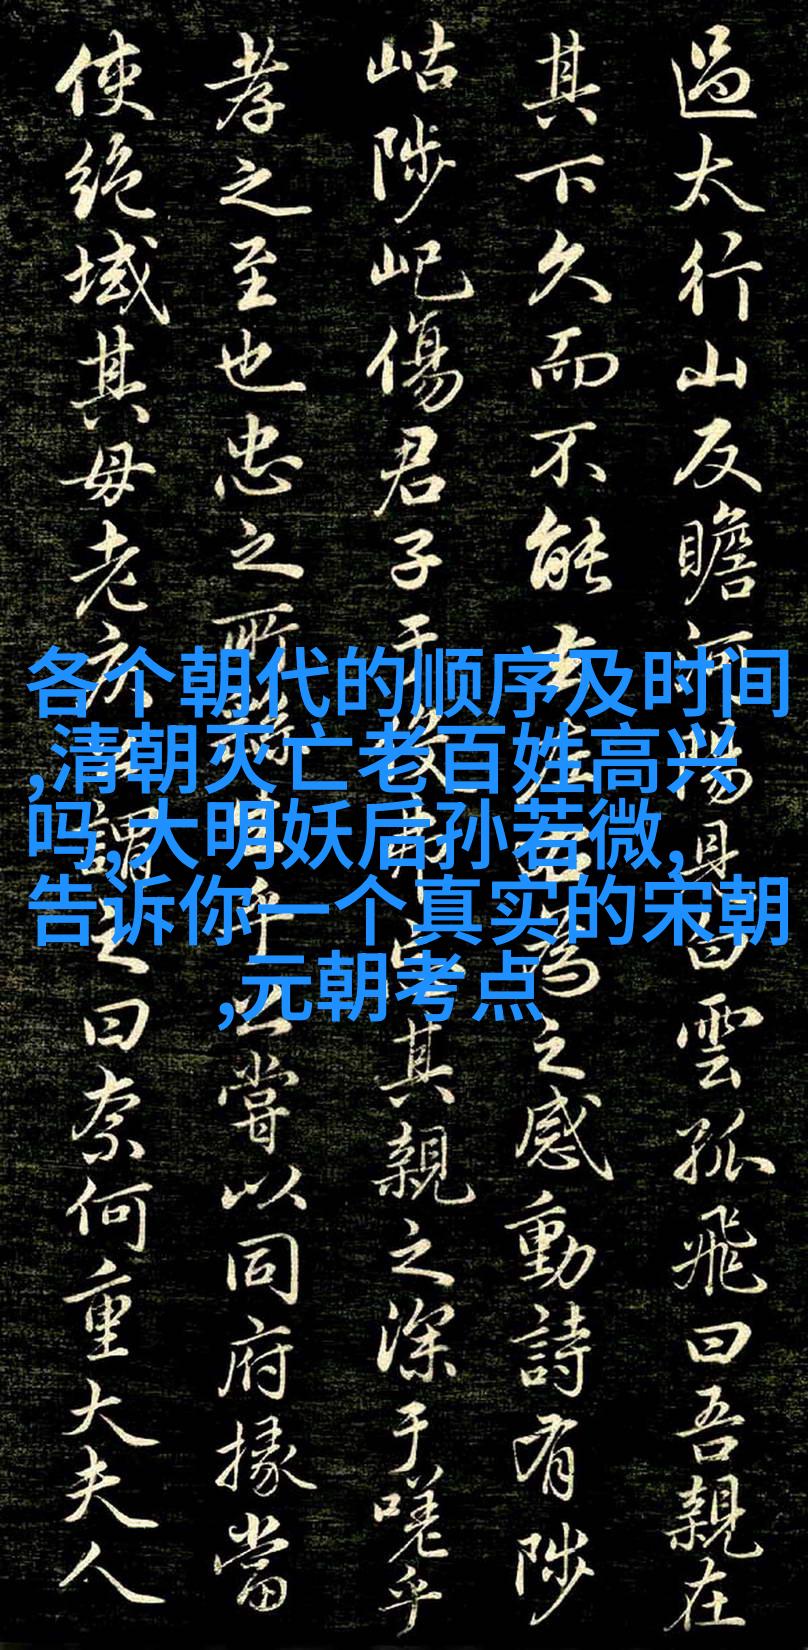 各个朝代的顺序及时间
,清朝灭亡老百姓高兴
吗,大明妖后孙若微,
告诉你一个真实的宋朝
,元朝考点
過太行山反瞻河陽見白雲孤飛曰吾親在
其下久而不能去為之感動詩有陟
岵陟屺傷君子于役弗其親之深于嗟乎
孝之至也忠之所繇生乎公嘗以同府掾當
使絕域其母老疾謂之曰奈何重大夫人